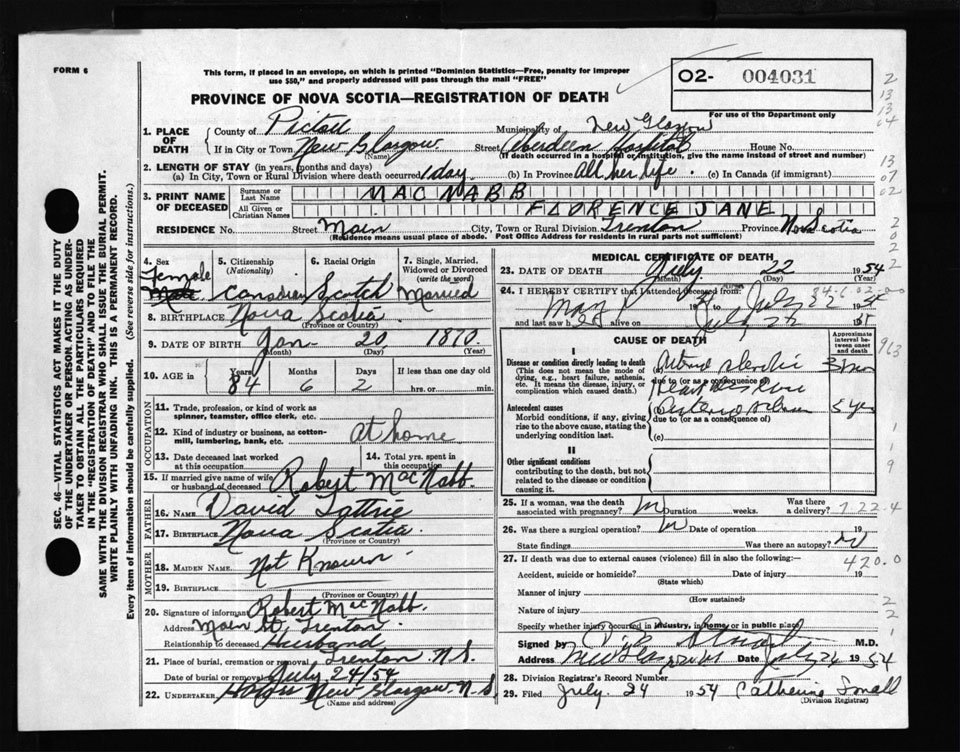 FORM 6
This form, if placed in an envelope, on which is printed "Dominion Statistics—Free, penalty for improper
use $50," and properly addressed will pass through the mail "FREE"
O2- 004031
For use of the Department only
PROVINCE OF NOVA SCOTIA—REGISTRATION OF DEATH
1. PLACE OF DEATH
County of Pictou Municipality of New Glasgow
If in City or Town New Glasgow (Name) Street Aberdeen Hospital House No.
(If death occurred in a hospital or institution, give the name instead of street and number)
2. LENGTH OF STAY (in years, months and days)
(a) In City, Town or Rural Division where death occurred 1 day. (b) In Province All her life. (c) In Canada (if immigrant)
3. PRINT NAME OF DECEASED
Surname or Last Name MAC NABB
All Given or Christian Names FLORENCE JANE
RESIDENCE No. Street Main City, Town or Rural Division Trenton Province Nova Scotia
(Residence means usual place of abode. Post Office Address for residents in rural parts not sufficient)
4. Sex Female Male
5. Citizenship (Nationality) Canadian
6. Racial Origin Scotch
7. Single, Married, Widowed or Divorced (write the word) Married
8. BIRTHPLACE Nova Scotia (Province or Country)
9. DATE OF BIRTH Jan- 20 1870. (Month) (Day) (Year)
10. AGE in Years 84 Months 6 Days 2 If less than one day old hrs. or min.
OCCUPATION
11. Trade, profession, or kind of work as spinner, teamster, office clerk, etc.
12. Kind of industry or business, as cotton-mill, lumbering, bank, etc. At home
13. Date deceased last worked at this occupation
14. Total yrs. spent in this occupation
15. If married give name of wife or husband of deceased Robert Mac Nabb.
FATHER
16. NAME David Tattrie
17. BIRTHPLACE Nova Scotia. (Province or Country)
MOTHER
18. MAIDEN NAME Not Known
19. BIRTHPLACE (Province or Country)
20. Signature of informant Robert Mac Nabb.
Address Main St. Trenton
Relationship to deceased Husband
21. Place of burial, cremation or removal Trenton N.S.
Date of burial or removal July 24/54
22. UNDERTAKER New Glasgow, N.S. (Name and address)
MEDICAL CERTIFICATE OF DEATH
23. DATE OF DEATH July 22 1954 (Month) (Day) (Year)
24. I HEREBY CERTIFY that I attended deceased from
May July 22
and last saw h alive on July 22
CAUSE OF DEATH
Approximate interval between onset and death
I
Disease or condition directly leading to death
(This does not mean the mode of dying, e.g., heart failure, asthenia, etc. It means the disease, injury, or complication which caused death.)
(a)
due to (or as a consequence of)
Antecedent causes
Morbid conditions, if any, giving rise to the above cause, stating the underlying condition last.
(b)
due to (or as a consequence of)
(c)
5 yrs
II
Other significant conditions
contributing to the death, but not related to the disease or condition causing it.
25. If a woman, was the death associated with pregnancy? Duration weeks. Was there a delivery?
7.22.4
26. Was there a surgical operation? Date of operation 19
State findings Was there an autopsy?
27. If death was due to external causes (violence) fill in also the following:
420.0
Accident, suicide or homicide? (State which) Date of injury 19
Manner of injury (How sustained)
Nature of injury
Specify whether injury occurred in industry, in home or in public place
Signed by M.D.
Address New Glasgow Date July 24 1954
28. Division Registrar's Record Number
29. Filed July. 24 1954 Catherine Small (Division Registrar)
SEC. 46—VITAL STATISTICS ACT MAKES IT THE DUTY
OF THE UNDERTAKER OR PERSON ACTING AS UNDERTAKER TO OBTAIN ALL THE PARTICULARS REQUIRED
IN THE "REGISTRATION OF DEATH" AND TO FILE THE
SAME WITH THE DIVISION REGISTRAR WHO SHALL ISSUE THE BURIAL PERMIT.
WRITE PLAINLY WITH UNFADING INK. THIS IS A PERMANENT RECORD.
Every item of information should be carefully supplied. (See reverse side for instructions.)